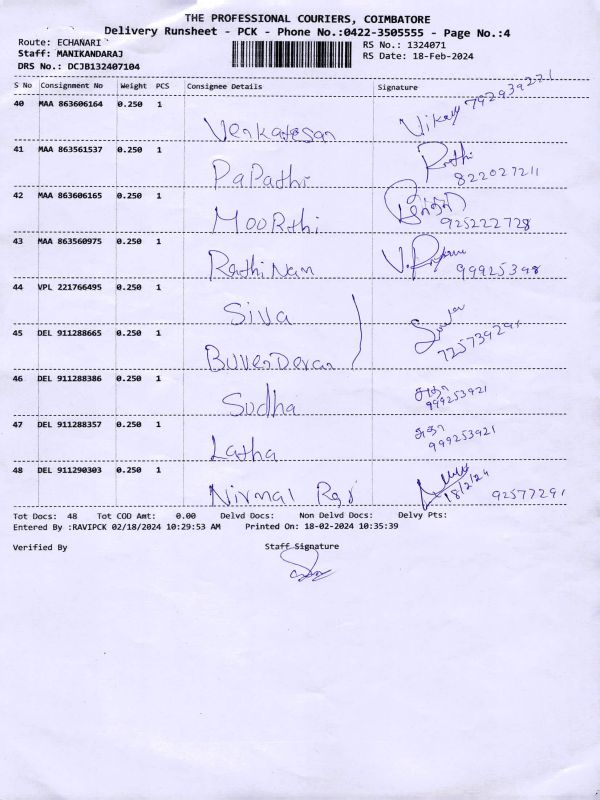 THE PROFESSIONAL COURIERS, COIMBATORE
Delivery Runsheet - PCK - Phone No.:0422-3505555 - Page No.:4
Route: ECHANARI
Staff: MANIKANDARAJ
DRS No.: DCJB132407104
RS No.: 1324071
RS Date: 18-Feb-2024
S No Consignment No Weight PCS Consignee Details Signature
40 MAA 863606164 0.250 1 Venkatesan Vikay 7929392271
41 MAA 863561537 0.250 1 PaPathi Rathi 822027211
42 MAA 863606165 0.250 1 MooRthi 925222728
43 MAA 863560975 0.250 1 RathiNam 99925398
44 VPL 221766495 0.250 1 Siva
45 DEL 911288665 0.250 1 BuvenDeran 725739291
46 DEL 911288386 0.250 1 Sudha சுதா 999253921
47 DEL 911288357 0.250 1 Latha சுதா 999253921
48 DEL 911290303 0.250 1 Nirmal Raj 18/2/24 92577291
Tot Docs: 48 Tot COD Amt: 0.00 Delvd Docs: Non Delvd Docs: Delvy Pts:
Entered By :RAVIPCK 02/18/2024 10:29:53 AM Printed On: 18-02-2024 10:35:39
Verified By Staff Signature